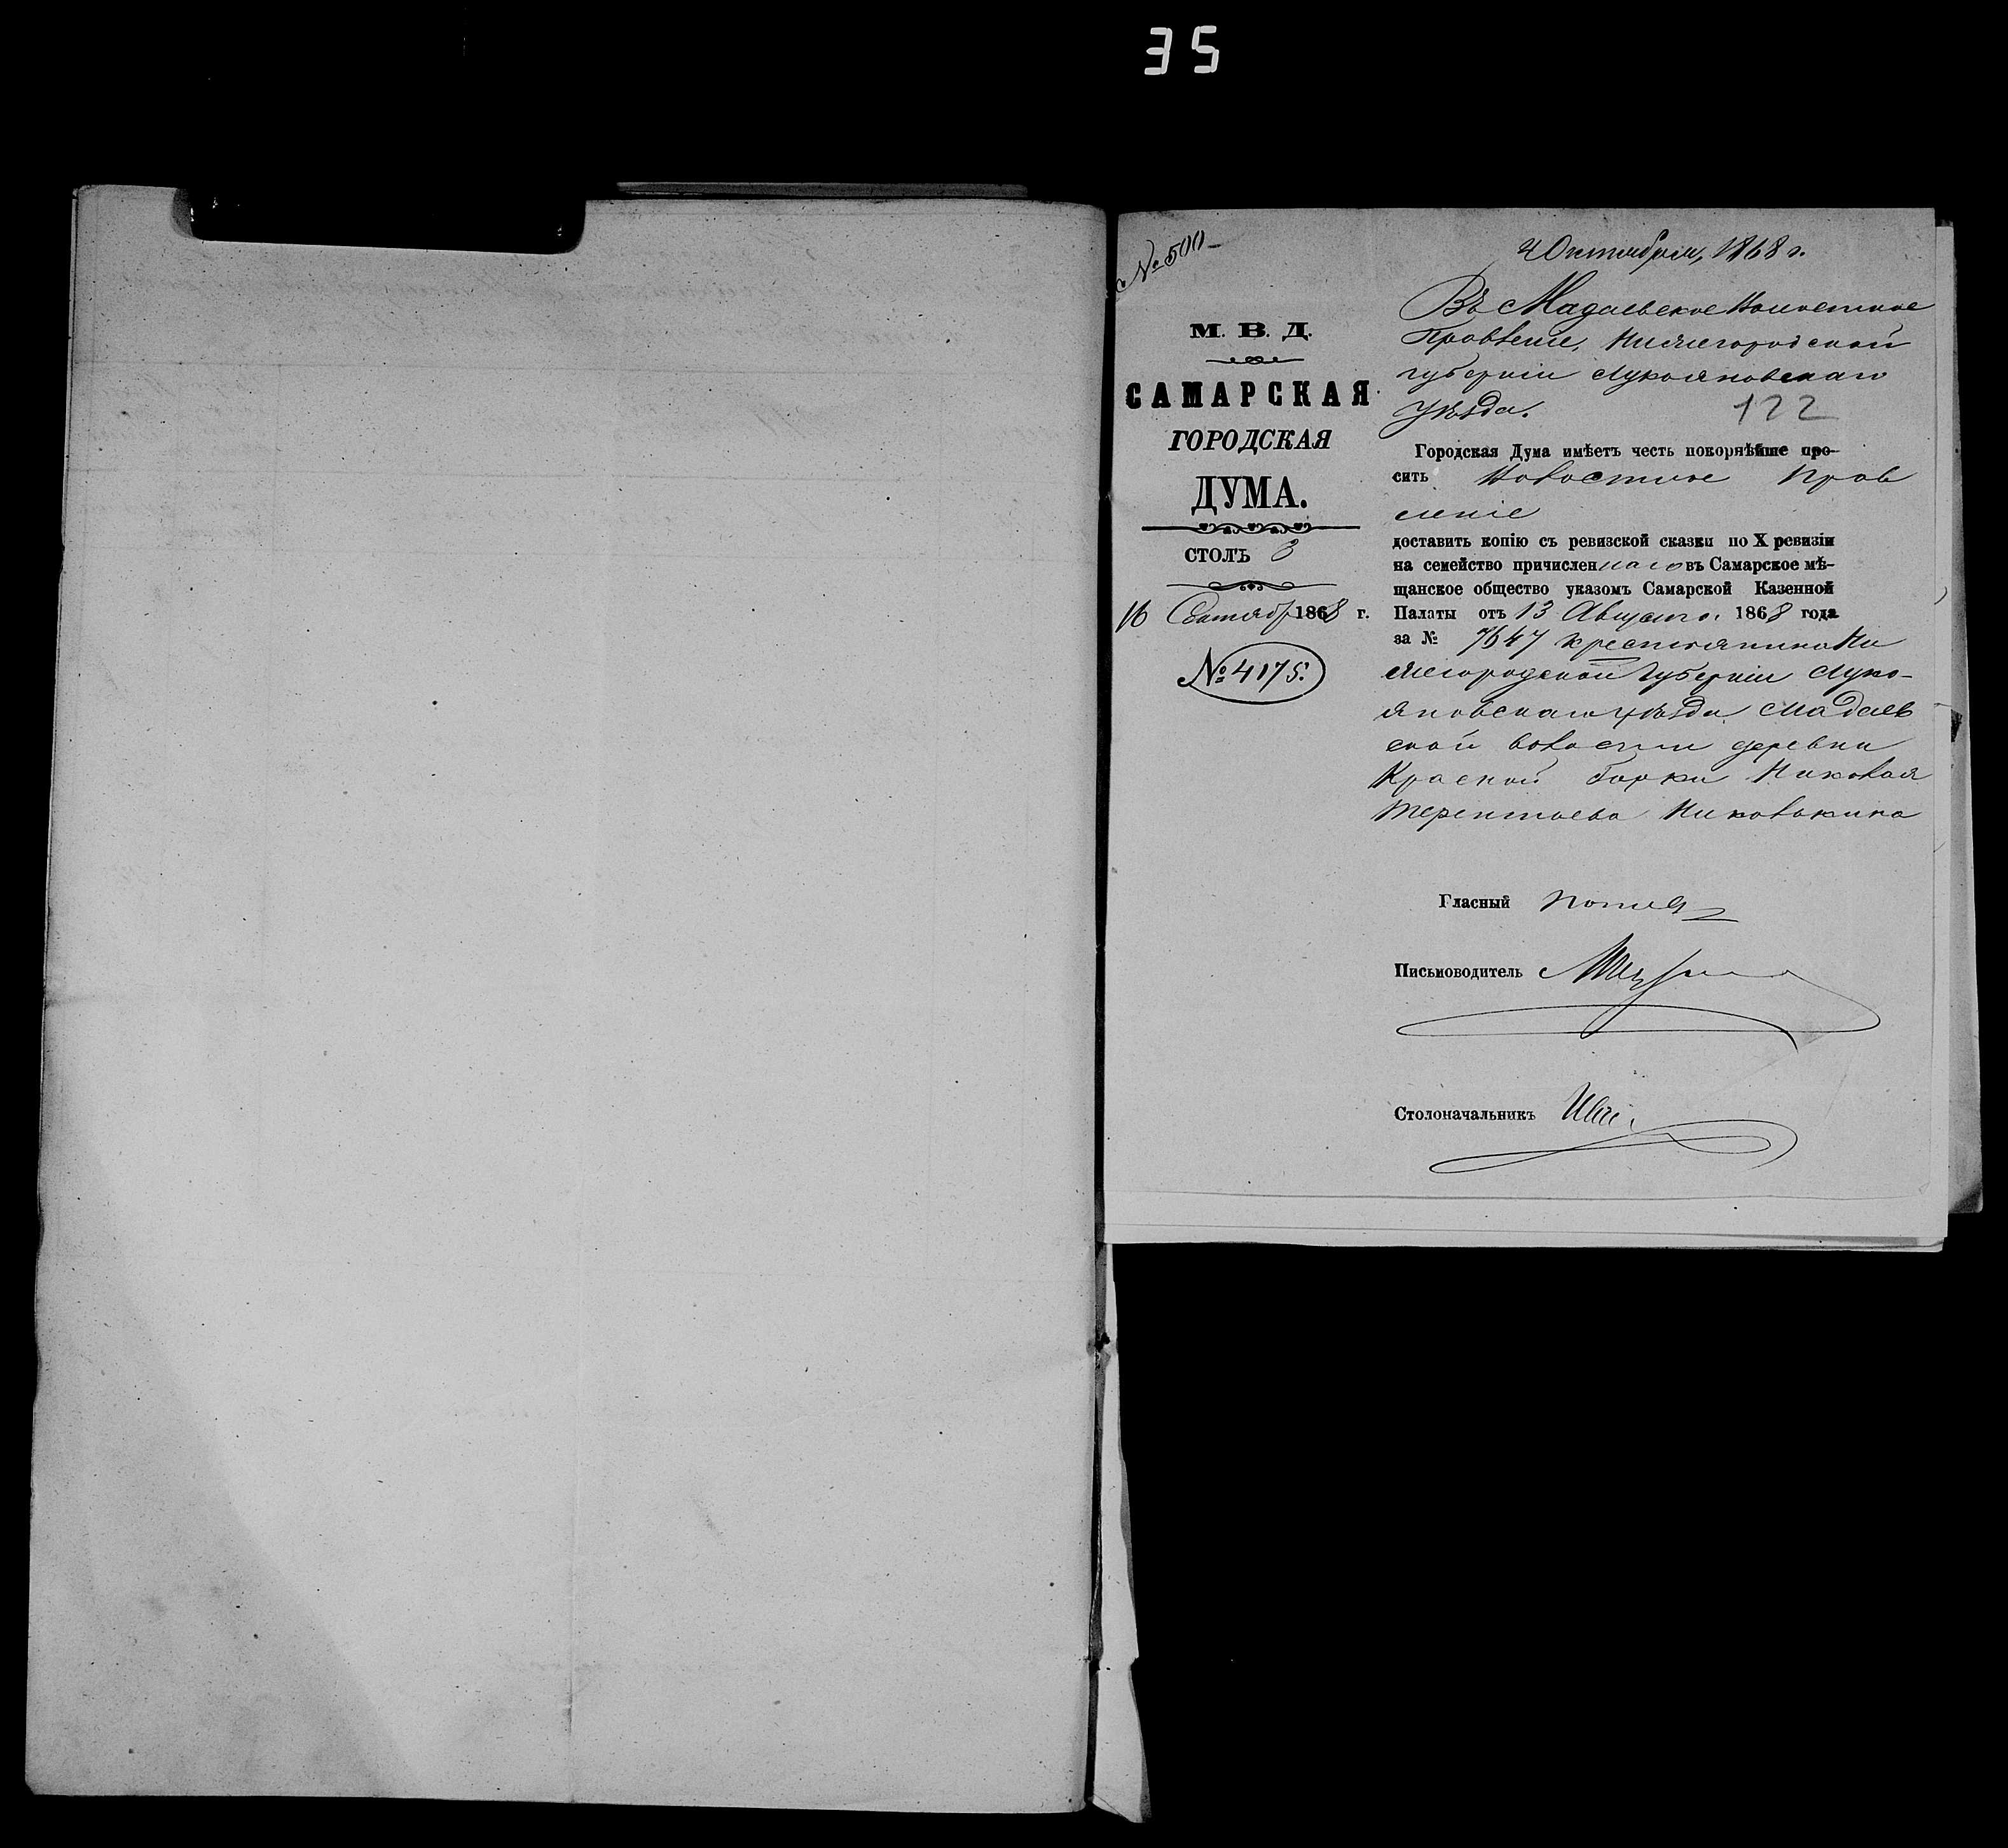 35
№ 500
4 Октября, 1868 г.
М. В. Д.
САМАРСКАЯ
ГОРОДСКАЯ
ДУМА.
СТОЛЪ 3
16 Сентябр 1868 г.
№ 4175.
Въ Мадаевское Волостное
Правленіе, Нижегородской
губерніи Лукояновскаго
уѣзда.
122
Городская Дума имѣетъ честь покорнѣйше про-
сить Волостное Прав
леніе
доставить копію съ ревизской сказки по X ревизіи
на семейство причисленнаго въ Самарское мѣ-
щанское общество указомъ Самарской Казенной
Палаты отъ 13 Августа 1868 года
за № 7647 крестьянина Ни
жегородской Губерніи Луко-
яновскаго уѣзда Мадаев
ской волости деревни
Красной Терентьева
Гласный
Письмоводитель
Столоначальникъ